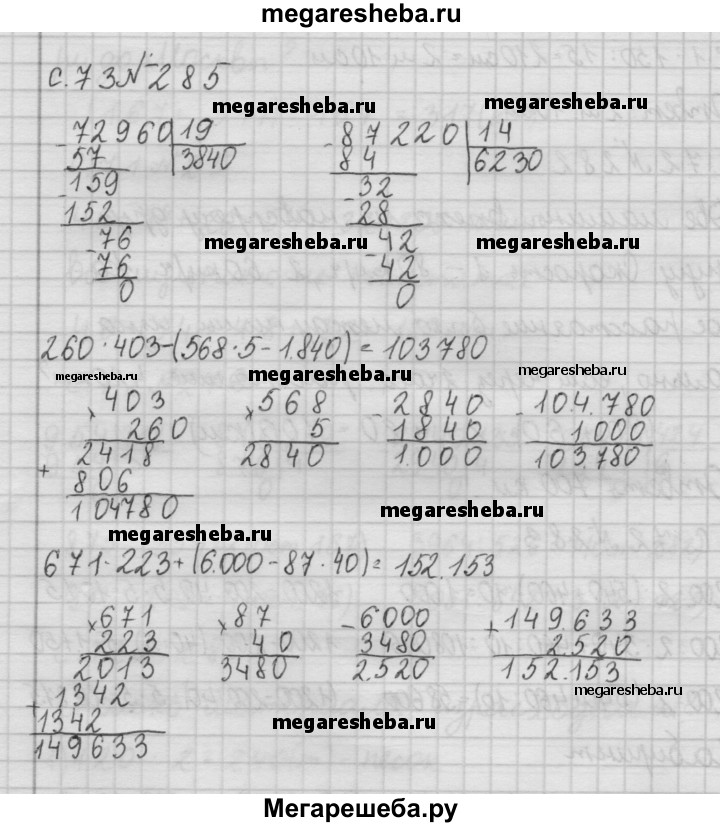 megaresheba.ru
с.73 № 285
megaresheba.ru megaresheba.ru
72960 19 87220 14
57 3840 84 6230
159 32
152 28
76 megaresheba.ru 42 megaresheba.ru
76 42
0 0
260·403-(568·5-1.840)=103780
megaresheba.ru megaresheba.ru megaresheba.ru
×403 ×568 -2840 -104.780
260 5 1840 1.000
2418 2840 1.000 103.780
+ 806
104780 megaresheba.ru
megaresheba.ru
671·223+(6.000-87·40)=152.153
×671 ×87 -6000 +149633
223 40 3480 2.520
2013 3480 2.520 152.153
+1342 megaresheba.ru
1342 megaresheba.ru
149633
Мегарешеба.ру